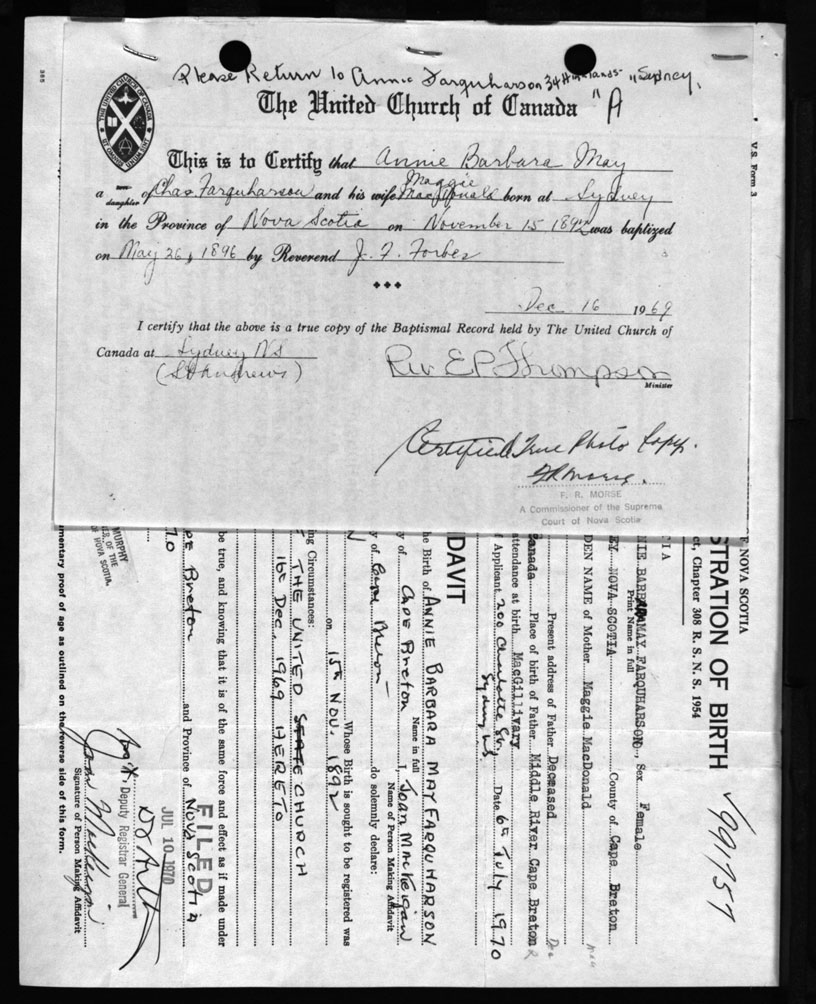 Please Return to Annie Farquharson 34 Highlands "Sydney,
The United Church of Canada "A
This is to Certify that Annie Barbara May
a son daughter of Chas Farquharson and his wife Maggie MacDonald born at Sydney
in the Province of Nova Scotia on November 15 1892 was baptized
on May 26, 1896 by Reverend J. F. Forbes
Dec 16 1969
I certify that the above is a true copy of the Baptismal Record held by The United Church of
Canada at Sydney NS
(St Andrews)
Rev E P Thompson
Minister
Certified True Photo Copy.
F R Morse.
F. R. MORSE
A Commissioner of the Supreme
Court of Nova Scotia
V.S. Form 3
NOVA SCOTIA
STRATION OF BIRTH
ct, Chapter 308 R. S. N. S. 1954
991757
NIE BARBARA MAY FARQUHARSON, Sex Female
Print Name in full
EY, NOVA SCOTIA County of Cape Breton
DEN NAME of Mother Maggie MacDonald
Present address of Father Deceased
Canada Place of birth of Father Middle River Cape Breton
attendance at birth MacGillivary
f Applicant 200 Charlotte St. Date 6th July 1970
Sydney N.S.
DAVIT
he Birth of ANNIE BARBARA MAY FARQUHARSON
Name in full
y of Cape Breton I, Joan MacKeigan
Name of Person Making Affidavit
y of Cape Breton do solemnly declare:
Whose Birth is sought to be registered was
on 15th NOV. 1892
ing Circumstances:
THE UNITED STATE CHURCH
16th Dec, 1969 HERETO
be true, and knowing that it is of the same force and effect as if made under
pe Breton and Province of NOVA SCOTIA
70
FILED
JUL 10 1970
Deputy Registrar General
MURPHY
ER OF THE
OF NOVA SCOTIA
Signature of Person Making Affidavit
umentary proof of age as outlined on the reverse side of this form.